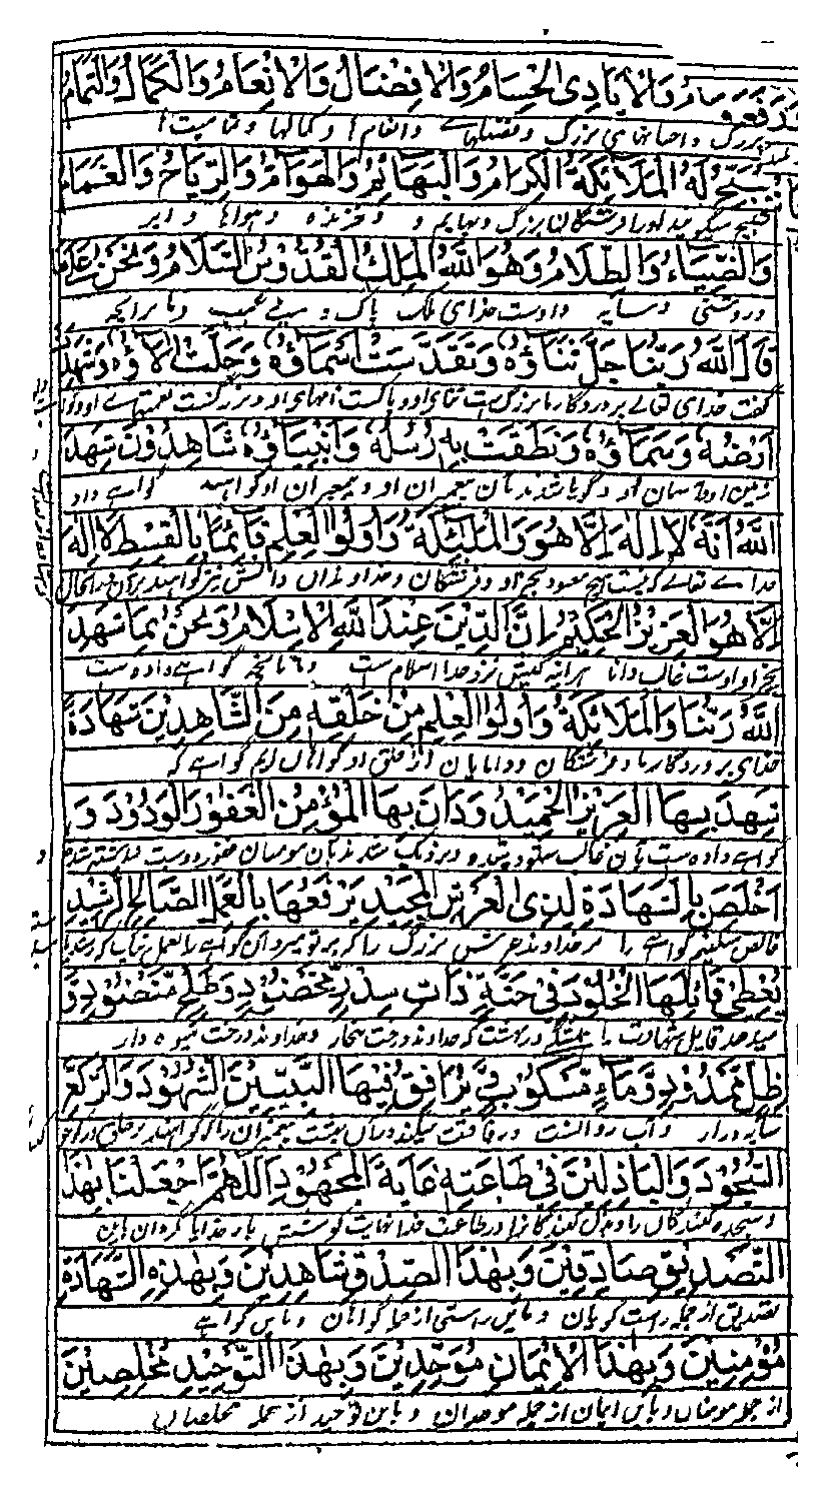 وَالْاَيَادِى الْجِسَامُ وَالْاِفْضَالُ وَالْاِنْعَامُ وَالْكَمَالُ وَالتَّمَامُ
بزرگ و احسانهای بزرگ و تفضلهاے و انعام او کمالها و تمامیت
يُسَبِّحُ لَهُ الْمَلَائِكَةُ الْكِرَامُ وَالْبَهَائِمُ وَالْهَوَامُّ وَالرِّيَاحُ وَالْغَمَامُ
تسبیح میگوید او را فرشتگان بزرگ و بهایم و خزنده و هواها و ابر
وَالضِّيَاءُ وَالظَّلَامُ وَهُوَ اللّٰهُ الْمَلِكُ الْقُدُّوْسُ السَّلَامُ وَنَحْنُ عَلٰى مَا
و روشنی و سایه و اوست خدای ملک پاک و بے عیب و ما برانچه
قَالَ اللّٰهُ رَبُّنَا جَلَّ ثَنَاؤُهُ وَتَقَدَّسَتْ اَسْمَاؤُهُ وَجَلَّتْ اٰلَاؤُهُ وَشَهِدَ
گفت خدای تعالے پروردگار ما بزرگ ست ثنای او و پاکست نامهای او و بزرگست نعمتهاے او
اَرْضُهُ وَسَمَاؤُهُ وَنَطَقَتْ بِهِ رُسُلُهُ وَاَنْبِيَاؤُهُ شَاهِدُوْنَ شَهِدَ
زمین او و آسمان او و گویا شدند بآن پیغمبران او و پیغمبران او گواهند گواہے داد
اللّٰهُ اَنَّهُ لَا اِلٰهَ اِلَّا هُوَ وَالْمَلٰئِكَةُ وَاُولُوا الْعِلْمِ قَائِمًا بِالْقِسْطِ لَا اِلٰهَ
خداے تعالے که نیست هیچ معبود بجز او و فرشتگان و خداوندان دانش نیز گواهند
اِلَّا هُوَ الْعَزِيْزُ الْحَكِيْمُ اِنَّ الدِّيْنَ عِنْدَ اللّٰهِ الْاِسْلَامُ وَنَحْنُ بِمَا شَهِدَ
بجز او اوست غالب دانا هرآینه کیش نزد خدا اسلام ست و ما بآنچه گواہے داده ست
اللّٰهُ رَبُّنَا وَالْمَلَائِكَةُ وَاُولُوا الْعِلْمِ مِنْ خَلْقِهِ مِنَ الشَّاهِدِيْنَ شَهَادَةً
خدای پروردگار ما و فرشتگان و دانایان از خلق او گواهان ایم گواہے که
شَهِدَ بِهَا الْعَزِيْزُ الْحَمِيْدُ وَدَانَ بِهَا الْمُؤْمِنُ الْغَفُوْرَ الْوَدُوْدَ وَ
گواہے داده ست بآن غالب ستوده شده و نزدیک شدند بآن مومنان غفور دوست
اَخْلَصَ بِالشَّهَادَةِ لِذِى الْعَرْشِ الْمَجِيْدِ يَرْفَعُهَا بِالْعَمَلِ الصَّالِحِ الرَّشِيْدِ
خالص میکنند گواہے را مر خداوند عرش بزرگ را که بر تو میبرد آن گواہے را بعمل
يُعْطٰى قَائِلُهَا الْخُلُوْدَ فِىْ جَنَّةٍ ذَاتِ سِدْرٍ مَّخْضُوْدٍ وَطَلْحٍ مَّنْضُوْدٍ وَ
میدهد قایل شهادت را همیشگی در بهشت که خداوند درخت بیخار و خداوند درخت میوه دار
ظِلٍّ مَّمْدُوْدٍ وَّمَاءٍ مَّسْكُوْبٍ يُرَافِقُ فِيْهَا النَّبِيِّيْنَ الشُّهُوْدَ وَالرُّكَّعَ
سایه دراز و آب روانست و رفاقت میکند دران بهشت پیغمبران را که گواهند
السُّجُوْدَ وَالْبَاذِلِيْنَ فِىْ طَاعَتِهِ غَايَةَ الْمَجْهُوْدِ اَللّٰهُمَّ اجْعَلْنَا بِهٰذَا
و سجده کنندگان را و بذل کنندگانرا در طاعت خدا نهایت کوشش بار خدایا گردان باین
التَّصْدِيْقِ صَادِقِيْنَ وَبِهٰذَا الصِّدْقِ شَاهِدِيْنَ وَبِهٰذِهِ الشَّهَادَةِ
تصدیق از جمله راست گویان و باین راستی از جمله گواهان و باین گواہے
مُؤْمِنِيْنَ وَبِهٰذَا الْاِيْمَانِ مُوَحِّدِيْنَ وَبِهٰذَا التَّوْحِيْدِ مُخْلِصِيْنَ
از جمله مومنان و باین ایمان از جمله موحدان و باین توحید از جمله مخلصان